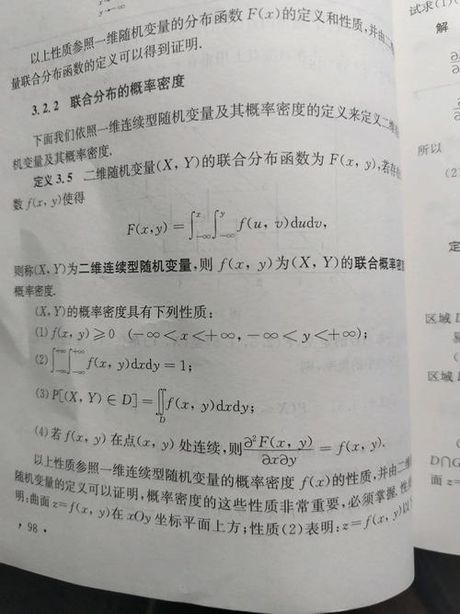 y→-∞
以上性质参照一维随机变量的分布函数 F(x)的定义和性质,并由二
量联合分布函数的定义可以得到证明.
3.2.2 联合分布的概率密度
下面我们依照一维连续型随机变量及其概率密度的定义来定义二维
机变量及其概率密度.
定义 3.5 二维随机变量(X, Y)的联合分布函数为 F(x, y),若存
数 f(x, y)使得
F(x,y) = ∫_{-∞}^{x}∫_{-∞}^{y} f(u, v)dudv,
则称(X, Y)为二维连续型随机变量,则 f(x, y)为(X, Y)的联合概率密
概率密度.
(X, Y)的概率密度具有下列性质:
(1) f(x, y)⩾0 (-∞<x<+∞, -∞<y<+∞);
(2) ∫_{-∞}^{+∞}∫_{-∞}^{+∞} f(x, y)dxdy = 1;
(3) P[(X, Y) ∈ D] = ∬_D f(x, y)dxdy;
(4) 若 f(x, y) 在点(x, y) 处连续, 则 ∂²F(x, y)/∂x∂y = f(x, y).
以上性质参照一维连续型随机变量的概率密度 f(x)的性质,并由二维
随机变量的定义可以证明,概率密度的这些性质非常重要,必须掌握.性
明:曲面 z=f(x, y)在 xOy 坐标平面上方;性质(2)表明:z=f(x, y)以
· 98 ·
试求(1)
解
所以
(2
定
区域
区域
D∩G
面 z=